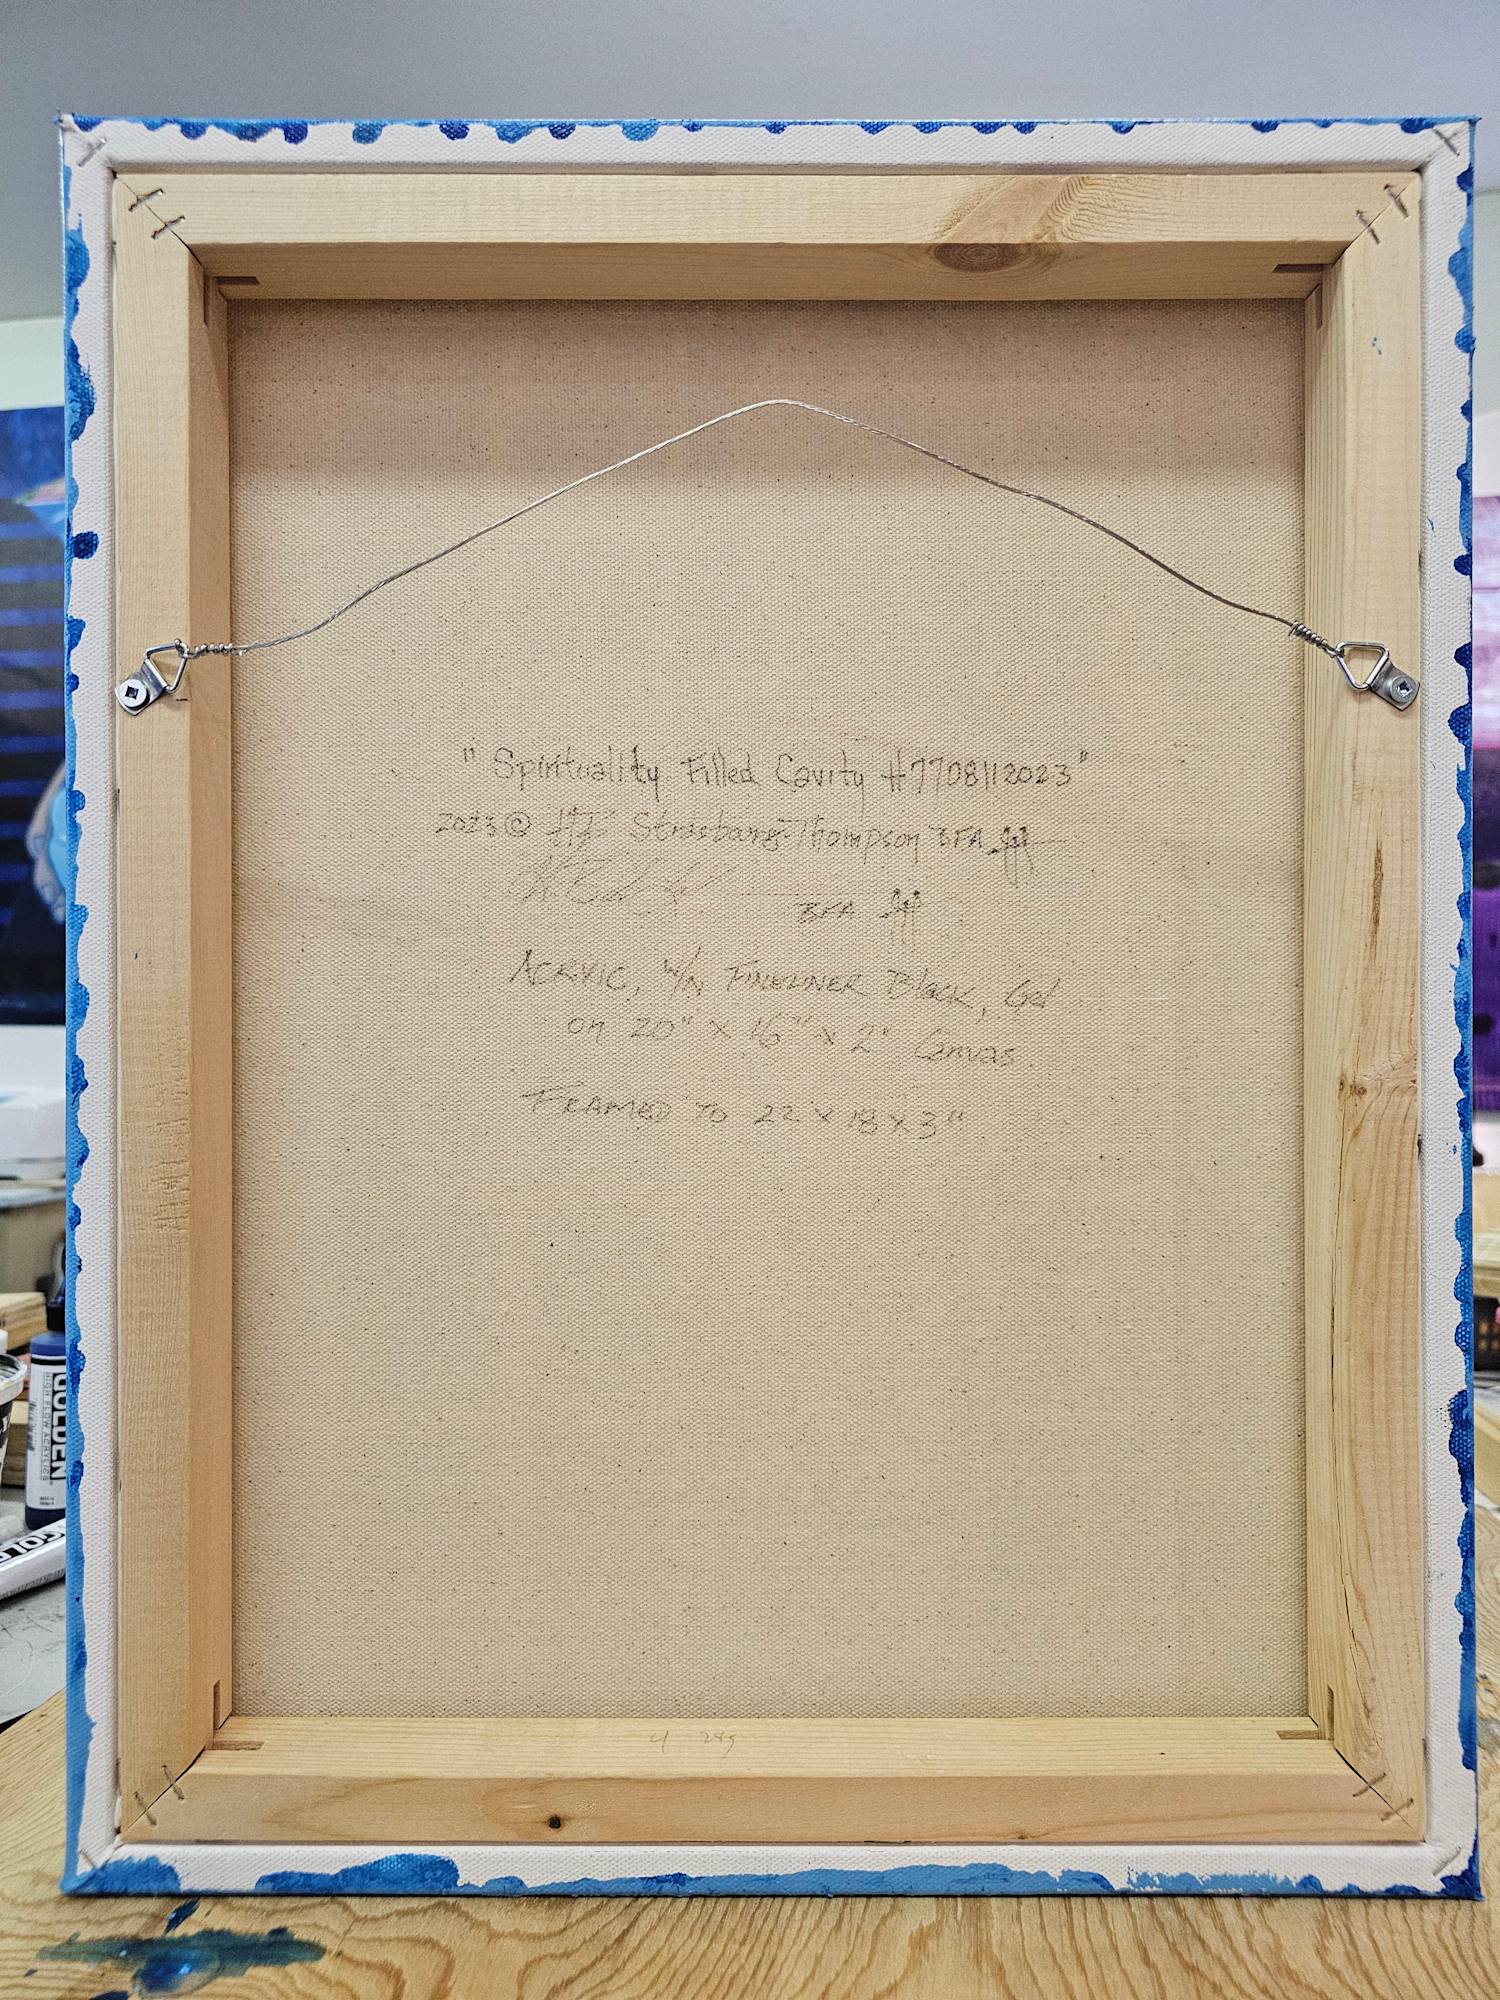 "Spirituality Filled Cavity #7708112023"
2023 © Strasbourg-Thompson BFA
BFA
ACRYIC, W/N FINELINER Black, Gel
on 20" x 16" x 2" Canvas.
FRAMED TO 22 x 18 x 3"
GOLDEN
HIGH FLOW ACRYLICS
GOLD